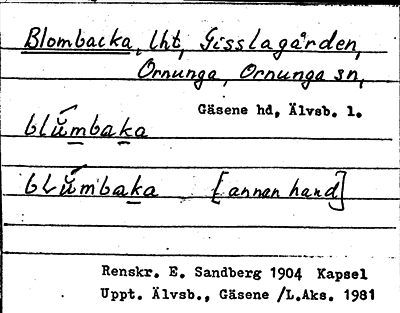 Blombacka, lht, Gisslagården,
Ornunga, Ornunga sn,
Gäsene hd, Älvsb. l.
blŭ́mbaka
blŭ́mbaka [annan hand]
Renskr. E. Sandberg 1904 Kapsel
Uppt. Älvsb., Gäsene /L.Aks. 1981